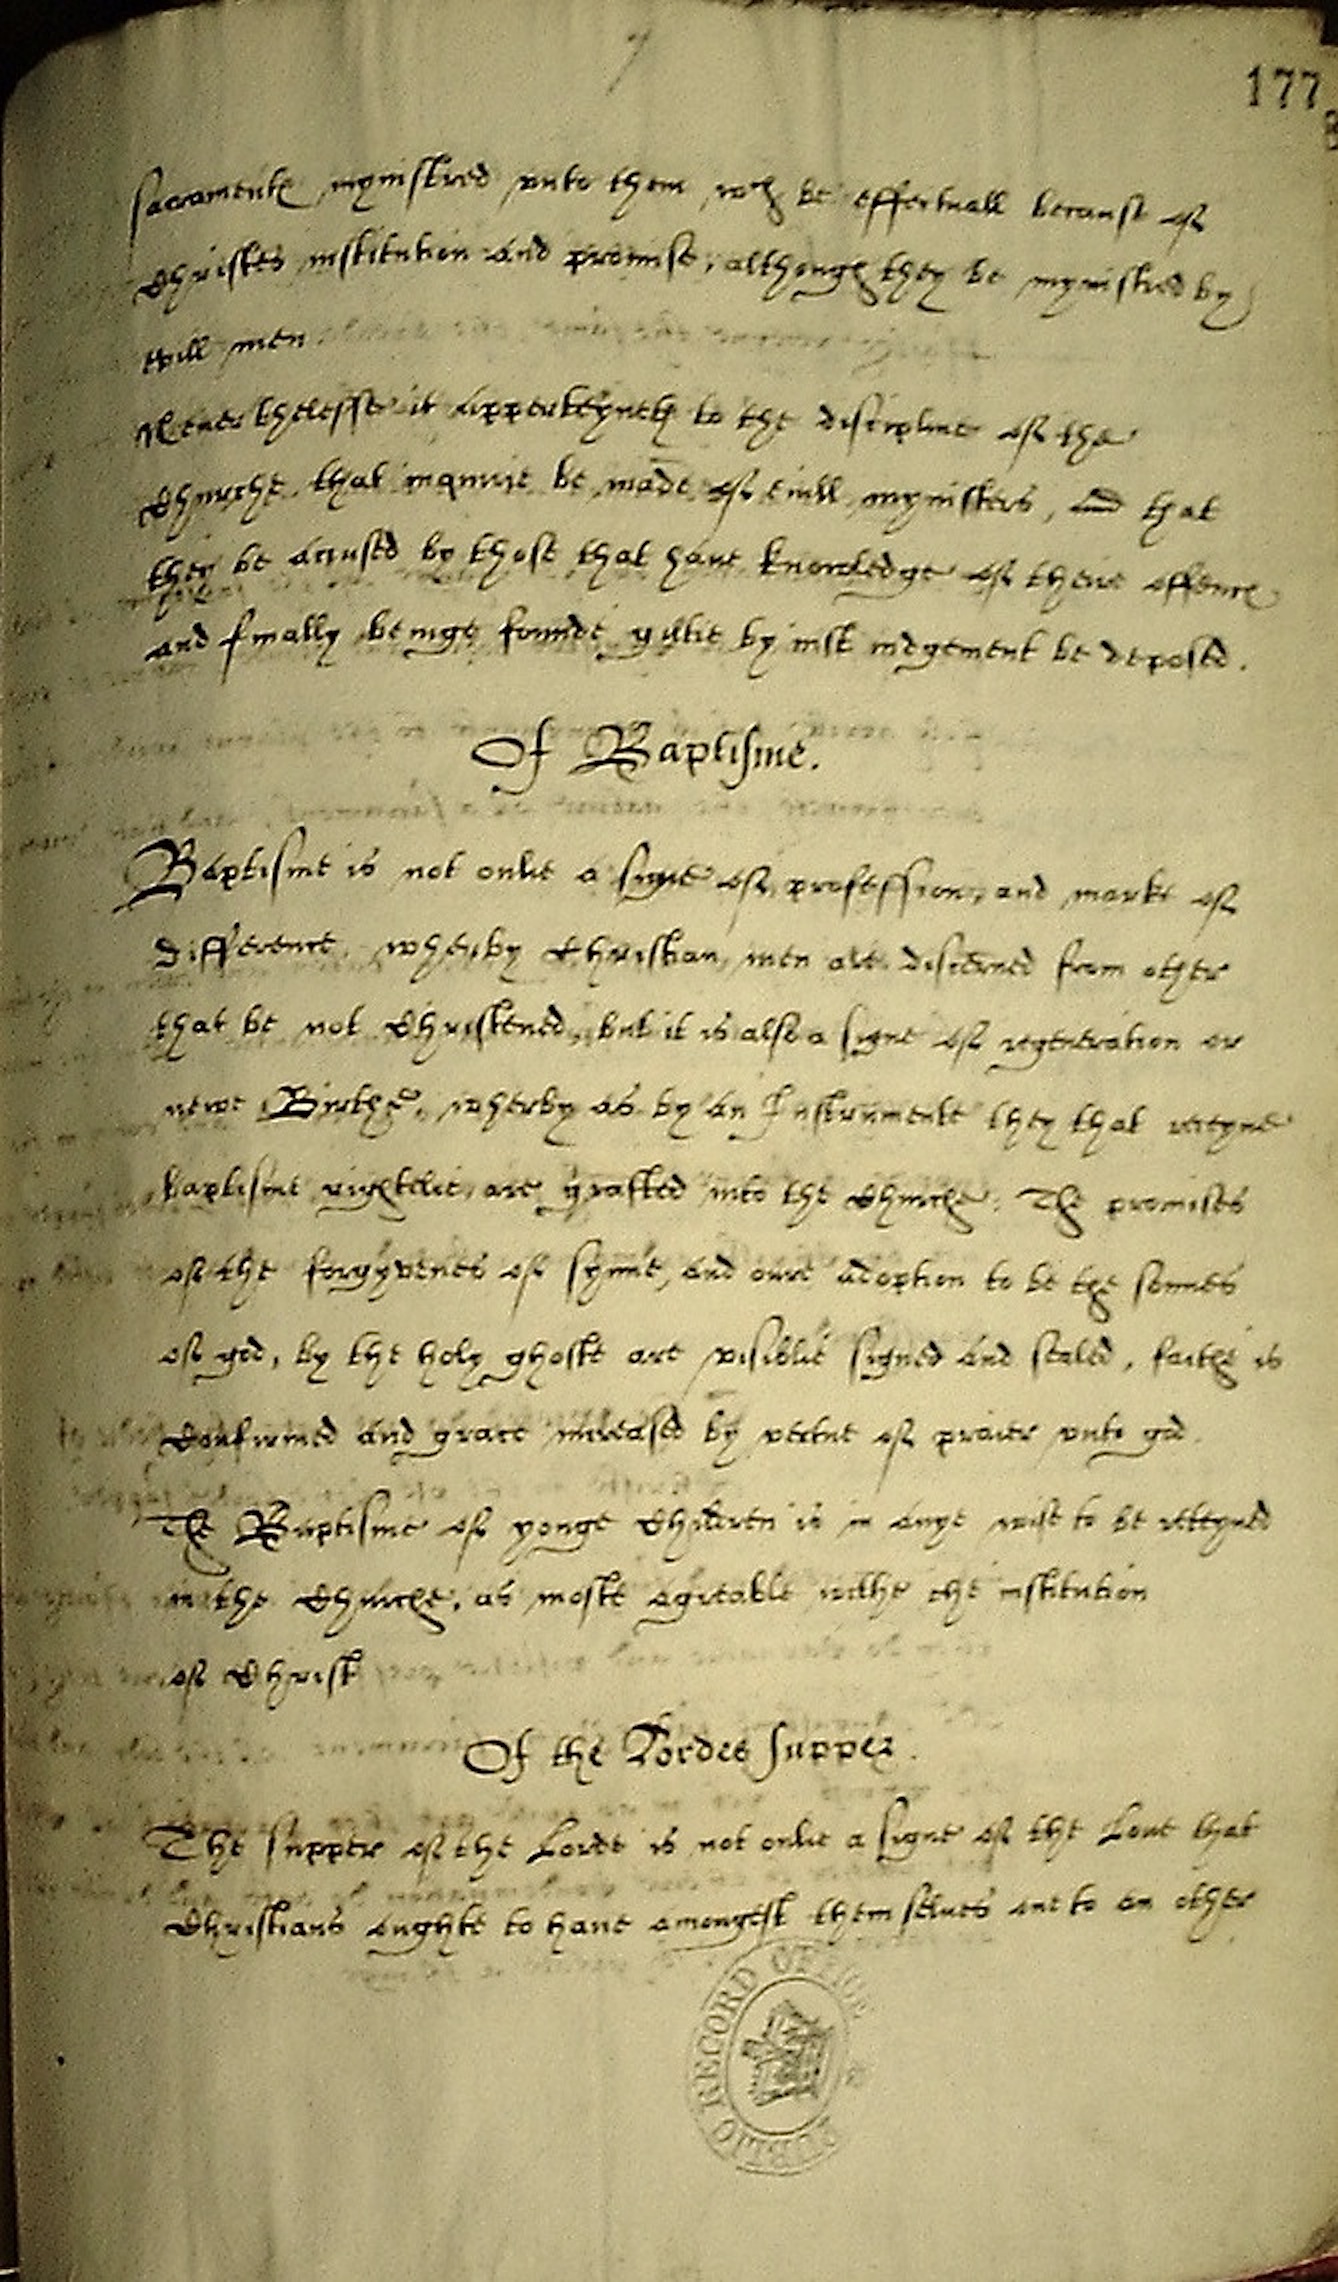 7
177
sacramentes mynistred unto them wch be effectuall because of
Christes institution and promise, although they be mynistred by
evill men.
Neverthelesse it apperteyneth to the discipline of the
Churche, that inquirie be made of evill mynisters, and that
they be accused by those that have knowledge of there offences
and finally beinge founde giltie by just judgement be deposed.
Of Baptisme.
Baptisme is not onlie a signe of profession, and marke of
difference, wherby Christian men are discerned from other
that be not Christened, but it is also a signe of regeneration or
newe Birthe, wherby as by an Instrumente they that receyve
baptisme rightelie, are grafted into the Churche. The promises
of the forgyvenes of synne, and owre adoption to be the sonnes
of god, by the holy ghoste are visiblie signed and sealed, faithe is
Confirmed and grace increased by vertue of praier unto god.
The Baptisme of yonge Children is in anye wise to be reteyned
in the Churche, as moste agreable withe the institution
of Christ
Of the Lordes supper.
The supper of the Lorde is not onlie a signe of the Love that
Christians oughte to have amongest them selves one to an other
PUBLIC RECORD OFFICE